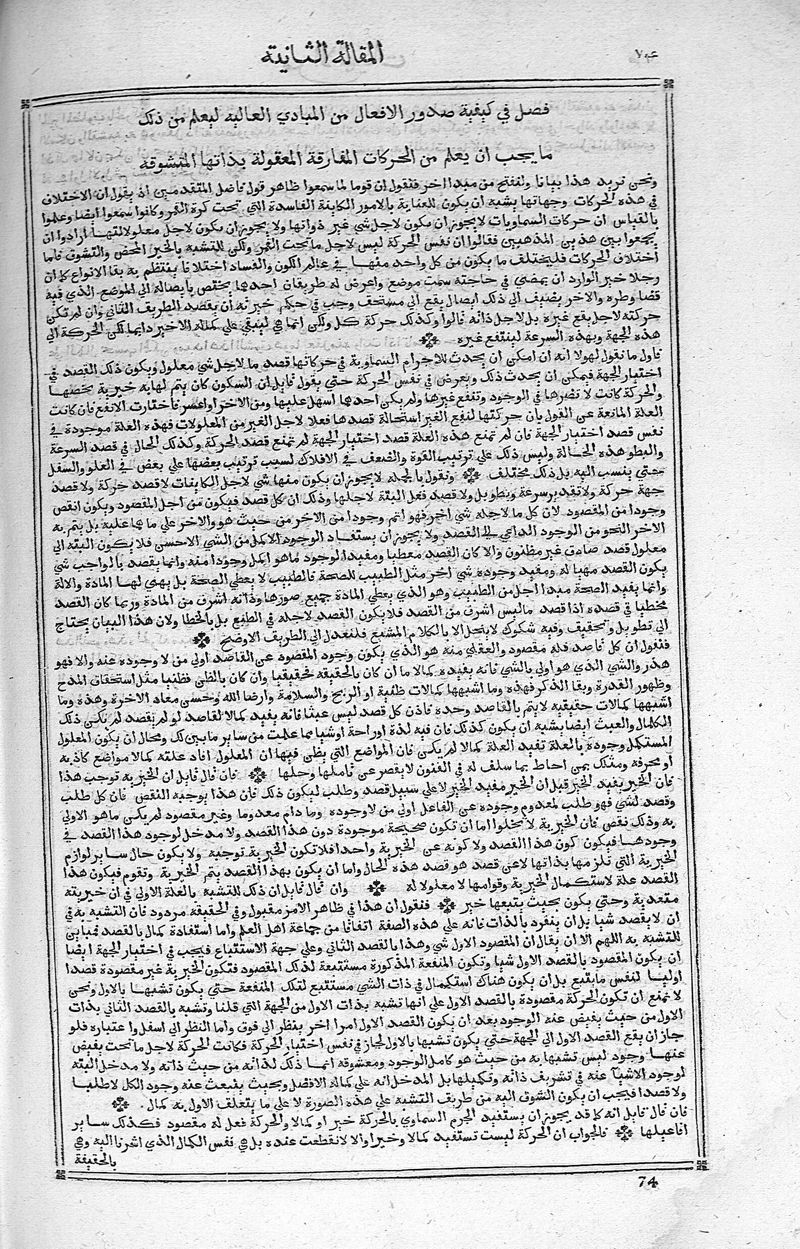 المقالة الثانية
فصل في كيفية صدور الافعال من المبادي العاليه ليعلم من ذلك
ما يجب ان يعلم من المحركات المفارقة المعقولة بذاتها المتشوقة
ونحن نريد هذا بيانا ونفتتح من مبدا اخر فنقول ان قوما لما سمعوا ظاهر قول فاضل المتقدمين اذ يقول ان الاختلاف
في هذه الحركات وجهاتها يشبه ان يكون للعناية بالامور الكاينة الفاسدة التي تحت كرة القمر وكانوا سمعوا ايضا وعلموا
بالقياس ان حركات السماويات لا يجوز ان يكون لاجل شي غير ذواتها ولا يجوز ان يكون لاجل معلولاتها ارادوا ان
يجمعوا بين هذين المذهبين فقالوا ان نفس الحركة ليس لاجل ما تحت القمر ولكن للتشبه بالخير المحض والتشوق فاما
اختلاف الحركات فليختلف ما يكون من كل واحد منها في عالم الكون والفساد اختلافا ينتظم به بقا الانواع كما ان
رجلا خير الوارد ان يمضي في حاجته سمت موضع واعرض له طريقان احدهما يختص بايصاله الى الموضع الذي فيه
قضا وطره والاخر يضيف الى ذلك ايصال نفع الى مستحف وجب في حيكم خيرته ان يقصد الطريف الثاني وان لم تكن
حركته لاجل نفع غيره بل لاجل ذاته قالوا وكذلك حركة كل ولكن انما هي ليبقي علي كماله الاخير دايما لكن الحركة الى
هذه الجهة وبهذه السرعة لينتفع غيره
فاول ما نقول لهولا انه ان امكن ان يحدث للاجرام السماوية في حركاتها قصد ما لاجل شي معلول ويكون ذلك القصد في
اختيار الجهة فيمكن ان يحدث ذلك ويعرض في نفس الحركة حتي يقول قايل ان السكون كان يتم لها به خيرية يخصها
والحركة كانت لا تضرها في الوجود وتنفع غيرها ولم يكن احدهما اسهل عليها من الاخر او اعسر فاختارت الانفع فان كانت
العلة المانعة عن القول بان حركتها لنفع الغير استحالة قصدها فعلا لاجل الغير من المعلولات فهذه العلة موجودة في
نفس قصد اختيار الجهة فان لم تمنع هذه العلة قصد اختيار الجهة لم تمنع قصد الحركة وكذلك الحال في قصد السرعة
والبطو هذه الحالة وليس ذلك علي ترتيب القوة والضعف في الافلاك لسبب ترتيب بعضها علي بعض في العلو والسفل
حتي ينسب اليه بل ذلك مختلف ونقول بالجملة لا يجوز ان يكون منها شي لاجل الكاينات لا قصد حركة ولا قصد
جهة حركة ولا تقدير سرعة وبطو بل ولا قصد فعل البتة لاجلها وذلك ان كل قصد فيكون من اجل المقصود ويكون انقص
وجودا من المقصود لان كل ما لاجله شي اخر فهو اتم وجودا من الاخر من حيث هو والاخر علي ما هما عليه بل يتم به
الاخر النحو من الوجود الداعي الى القصد ولا يجوز ان يستفاد الوجود الاكمل من الشي الاخس فلا يكون البته الى
معلول قصد صادق غير مظنون والا كان القصد معطيا ومفيدا لوجود ما هو اكمل وجودا منه وانما يقصد بالواجب شي
يكون القصد مهيا له ومفيد وجوده شي اخر مثل الطبيب للصحة فالطبيب لا يعطي الصحة بل يهيي لها المادة والالة
وانما يفيد الصحة مبدا اجل من الطبيب وهو الذي يعطي المادة جميع صورها وذاته اشرف من المادة وربما كان القصد
مخطيا في قصده اذا قصد ما ليس اشرف من القصد فلا يكون القصد لاجله في الطبع بل بالخطا ولان هذا البيان يحتاج
الى تطويل وتحقيف وفيه شكوك لا ينحل الا بالكلام المشبع فلنعدل الى الطريف الاوضح
فنقول ان كل قاصد فله مقصود والعقلي منه هو الذي يكون وجود المقصود عن القاصد اولي من لا وجوده عنه والا فهو
هذر والشي الذي هو اولي بالشي فانه يفيده كمالا ما ان كان بالحقيقة فحقيقيا وان كان بالظن فظنيا مثل استحقاق المدح
وظهور القدرة وبقا الذكر فهذه وما اشبهها كمالات ظنية او الربح والسلامة وارضا الله وحسن معاد الاخرة وهذه وما
اشبهها كمالات حقيقيه لا يتم بالقاصد وحده فاذن كل قصد ليس عبثا فانه يفيد كمالا لقاصد لو لم يقصد لم يكن ذلك
الكمال والعبث ايضا يشبه ان يكون كذلك فان فيه لذة او راحة او شيا مما علمت من ساير ما بين لك ومحال ان يكون المعلول
المستكمل وجوده بالعلة تفيد العلة كمالا لم يكن فان المواضع التي يظن فيها ان المعلول افاد علته كمالا مواضع كاذبه
او محرفه ومثلك بمن احاط بما سلف له في الفنون لا يقصر عن تاملها وحلها فان قال قايل ان الخيريه توجب هذا
فان الخير يفيد الخير قيل ان الخير مفيد الخير لا علي سبيل قصد وطلب ليكون ذلك فان هذا يوجبه النقص فان كل طلب
وقصد لشي فهو طلب لمعدوم وجوده عن الفاعل اولي من لا وجوده وما دام معدوما وغير مقصود لم يكن ما هو الاولي
به وذلك نقص فان الخيرية لا يخلوا اما ان تكون صحيحة موجودة دون هذا القصد ولا مدخل لوجود هذا القصد في
وجودها فيكون كون هذا القصد ولا كونه عن الخيرية واحدا فلا تكون الخيرية توجبه ولا يكون حال ساير لوازم
الخيرية التي تلزمها بذاتها لا عن قصد هو قصد هذه الحال واما ان يكون بهذا القصد يتم الخيرية وتقوم فيكون هذا
القصد علة لاستكمال الخيرية وقوامها لا معلولا له وان قال قايل ان ذلك للتشبه بالعلة الاولي في ان خيريته
متعدية وحتي يكون بحيث يتبعها خير فنقول ان هذا في ظاهر الامر مقبول وفي الحقيقة مردود فان التشبه به في
ان لا يقصد شيا بل ان ينفرد بالذات فانه علي هذه الصفة اتفاقا من جماعة اهل العلم واما استفادة كمال بالقصد فمباين
للتشبه به اللهم الا ان يقال ان المقصود الاول شي وهذا بالقصد الثاني وعلي جهة الاستتباع فيجب في اختيار الجهة ايضا
ان يكون المقصود بالقصد الاول شيا وتكون المنفعة المذكورة مستتبعة لذلك المقصود فتكون الخيرية غير مقصودة قصدا
اوليا لنفس ما يتبع بل ان يكون هناك استكمال في ذات الشي مستتبع لتلك المنفعة حتي يكون تشبها بالاول ونحن
لا نمنع ان تكون الحركة مقصودة بالقصد الاول علي انها تشبه بذات الاول من الجهة التي قلنا وتشبه بالقصد الثاني بذات
الاول من حيث يفيض عنه الوجود بعد ان يكون القصد الاول امرا اخر ينظر الى فوق واما النظر الى اسفل واعتباره فلو
جاز ان يقع القصد الاول الى الجهة حتي يكون تشبها بالاول لجاز في نفس اختيار الحركة فكانت الحركة لاجل ما تحت يفيض
عنها وجود ليس تشبها به من حيث هو كامل الوجود ومعشوقه انما ذلك لذاته من حيث ذاته ولا مدخل البته
لوجود الاشيآ عنه في تشريف ذاته وتكميلها بل المدخل انه علي كماله الافضل وبحيث ينبعث عنه وجود الكل لا طلبا
ولا قصدا فيجب ان يكون الشوق اليه من طريف التشبه علي هذه الصورة لا علي ما يتعلف الاول به كمال
فان قال قايل انه كما قد يجوز ان يستفيد الجرم السماوي بالحركة خيرا وكمالا والحركة فعل له مقصود فكذلك ساير
افاعيلها فالجواب ان الحركة ليست تستفيد كمالا وخيرا والا لانقطعت عنده بل هي نفس الكمال الذي اشرنا اليه وهي
بالحقيقة
74